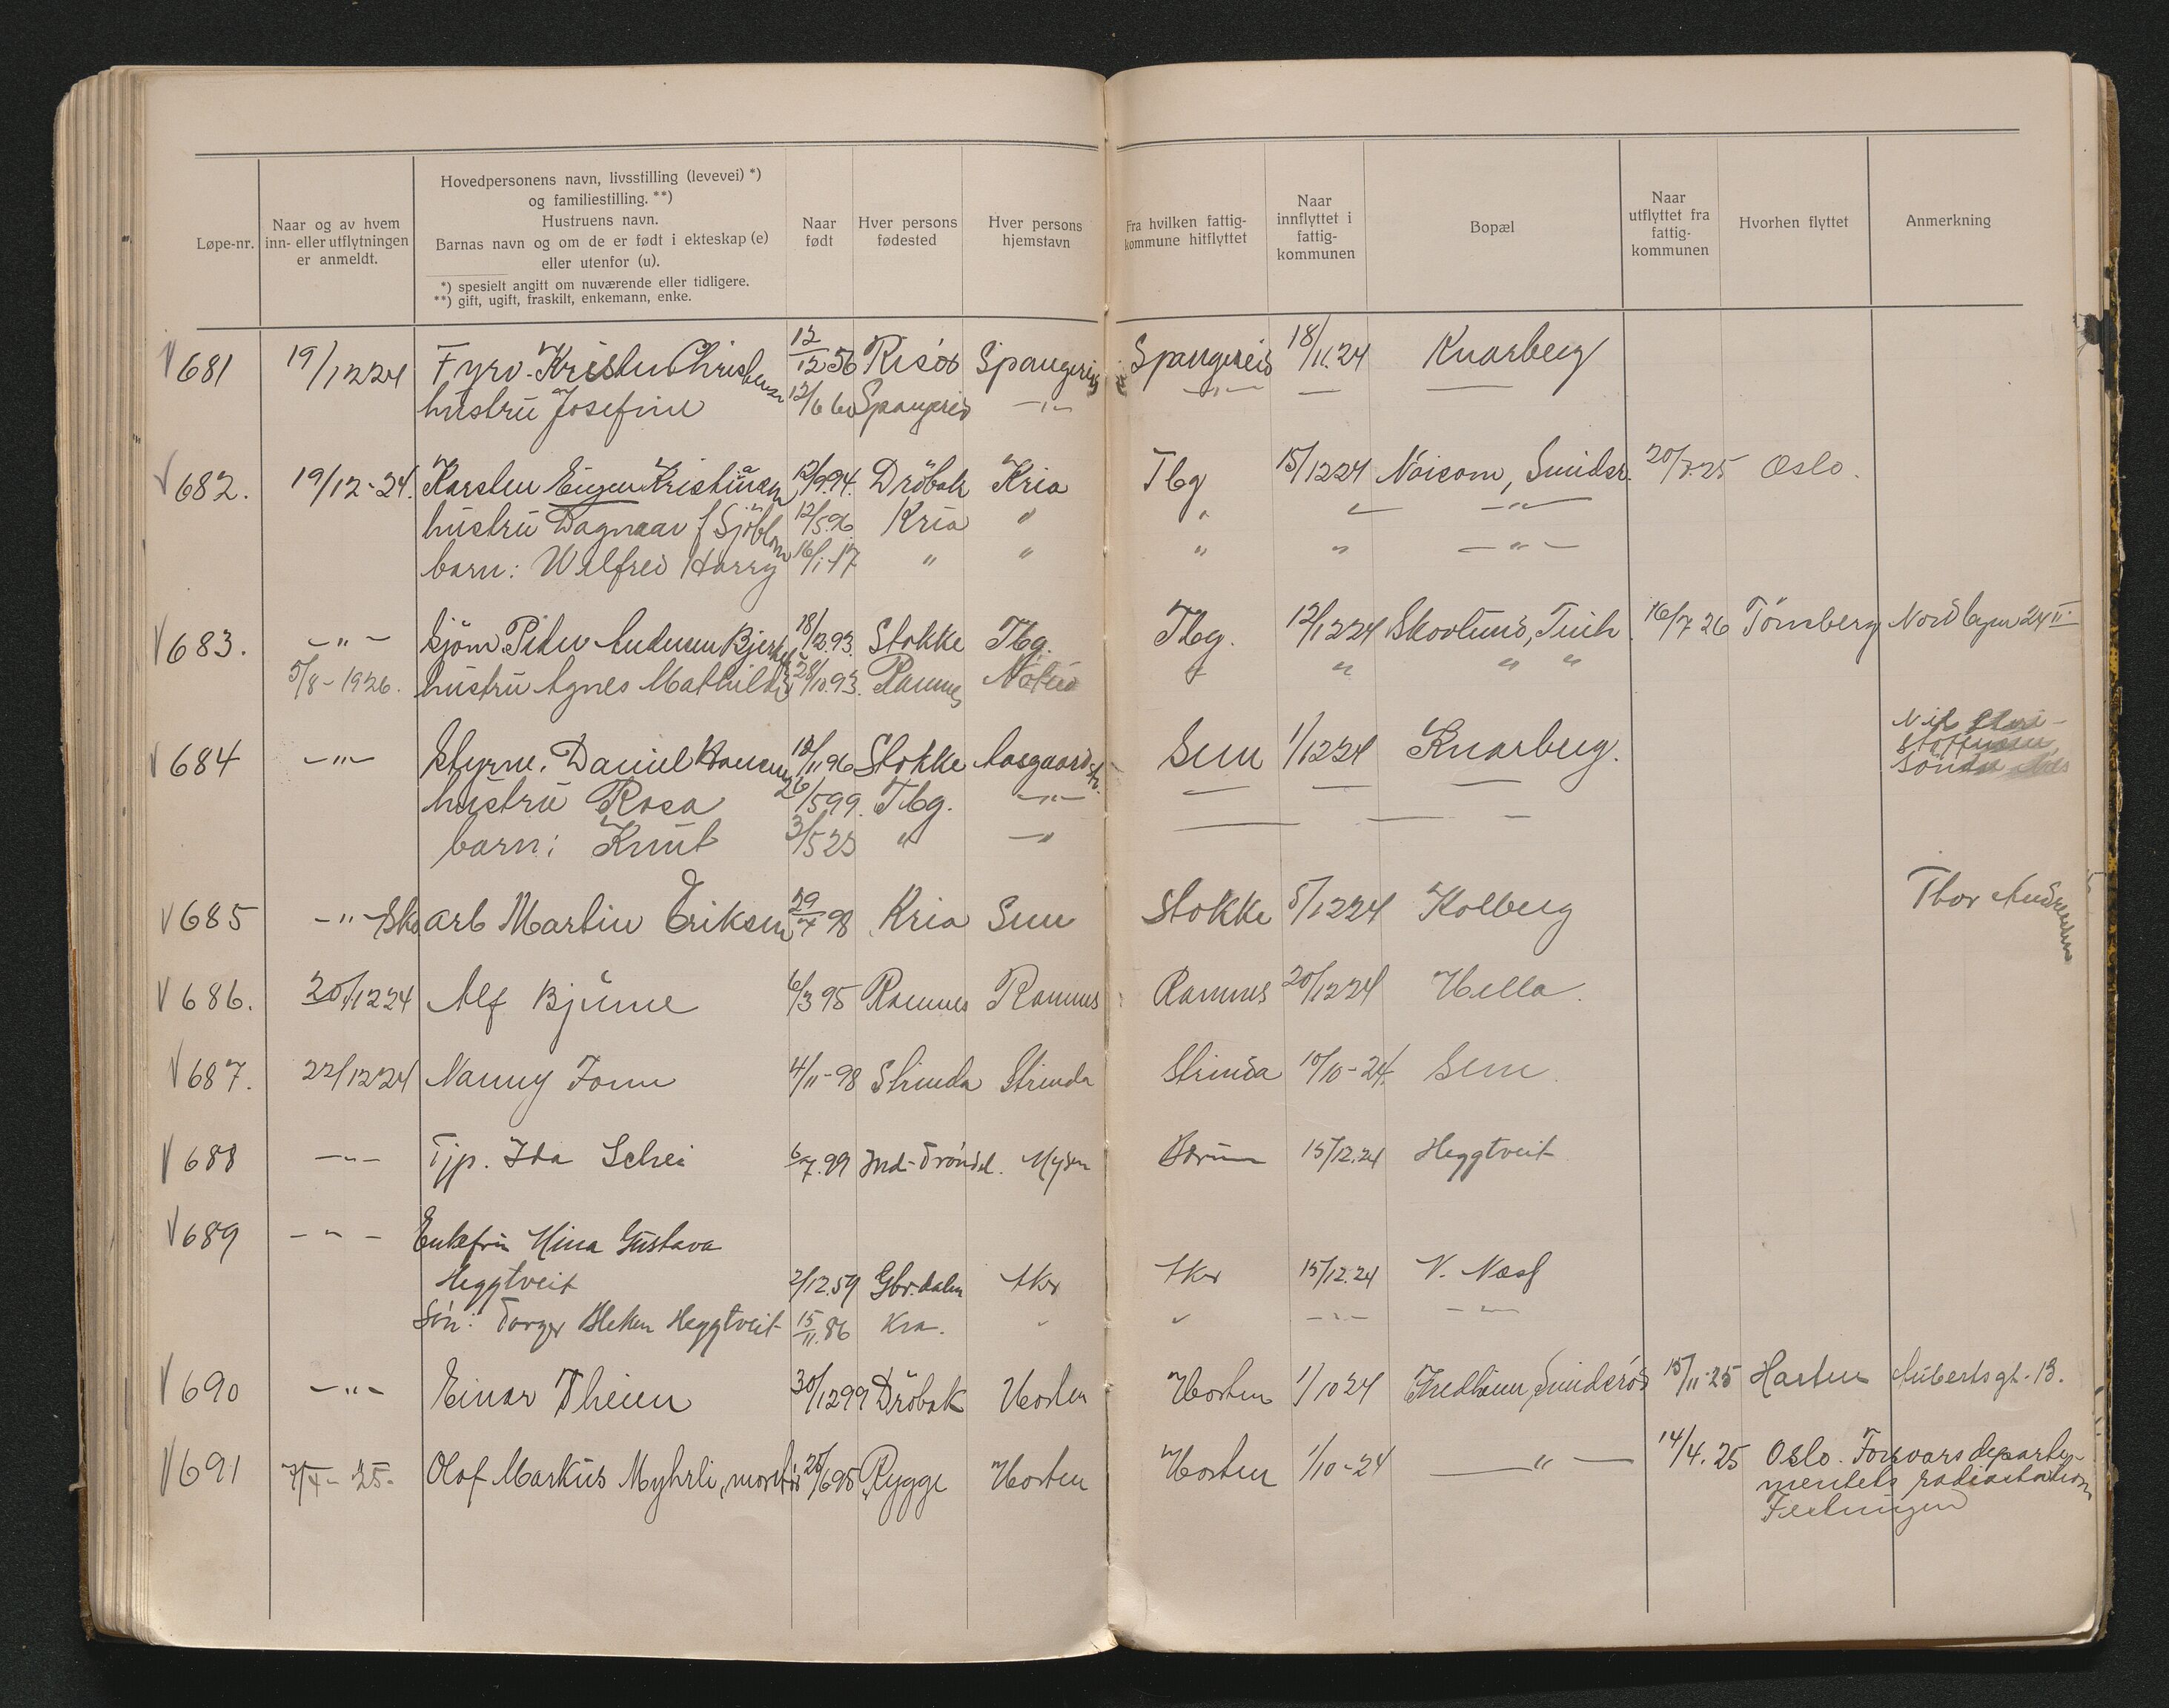 Løpe-nr.
Naar og av hvem inn- eller utflytningen er anmeldt.
Hovedpersonens navn, livsstilling (levevei) *)
og familiestilling. **)
Hustruens navn.
Barnas navn og om de er født i ekteskap (e)
eller utenfor (u).
*) spesielt angitt om nuværende eller tidligere.
**) gift, ugift, fraskilt, enkemann, enke.
Naar født
Hver persons fødested
Hver persons hjemstavn
Fra hvilken fattig-kommune hitflyttet
Naar innflyttet i fattig-kommunen
Bopæl
Naar utflyttet fra fattig-kommunen
Hvorhen flyttet
Anmerkning
681 19/12 24 Fyrv. Kristen Christensen 12/12 56 Risör Spangereid Spangereid 18/11.24 Knarberg
hustru Josefine 12/6 60 Spangereid -"- -"- — —
682. 19/12-24. Karsten Eugen Kristiansen 12/9 94. Dröbak Kria Tbg 15/12 24 Noisom, Smidsr. 20/7.25 Oslo.
hustru Dagmar f Sjöblom 12/5.96 Kria " " " -"-
barn: Wilfred Harry 16/1-17 " " " " -"-
683. -"- Sjöm Peder Andersen Bjerke 18/12.93. Stokke Tbg. Tbg. 12/12 24 Skovlund, Teie 16/7 26 Tönsberg Nordbyen 24 II
5/8-1926. hustru Agnes Mathilde 28/10.93. Ramnes " " " "
684 -"- Styrm. Daniel Hansen 12/11 96 Stokke Aasgaardstr. Sem 1/12 24 Knarberg.
hustru Rosa 26/5 99. Tbg. -"- — — —
barn: Knut 3/5 23 " -" — — —
685 -"- Sko arb Martin Eriksen 29/7 98 Kria Sem Stokke 5/12 24 Kolberg Thor Andersen
686. 20/12 24 Alf Bjune 6/3 95 Ramnes Ramnes Ramnes 20/12 24 Hella.
687. 22/12 24 Nanny Foun 4/11-98 Strinda Strinda Strinda 10/10-24. Sem.
688 -"- Tjp. Ida Schei 6/7.99 Ind-Tröndel. Mysen Bærum 15/12.24 Heggtveit
689 -"- Enkefru Mina Gustava
Heggtveit 2/12.59 Gbr.dalen Aker Aker 15/12.24 N. Næss
Sön: Torger Bleken Heggtveit 15/11.86 Kra. " " -"- -"-
690 -"- Einar Theien 30/12 99 Dröbak Horten Horten 1/10 24 Fredheim, Smidsröd 15/11-25 Horten Aubertsgt. 13.
691 7/4-25. Olof Markus Myhrli, 25/6 95 Rygge Horten Horten 1/10-24 —"— 14/4.25 Oslo. Forsvarsdeparte-
mentets radiostation
Festningen